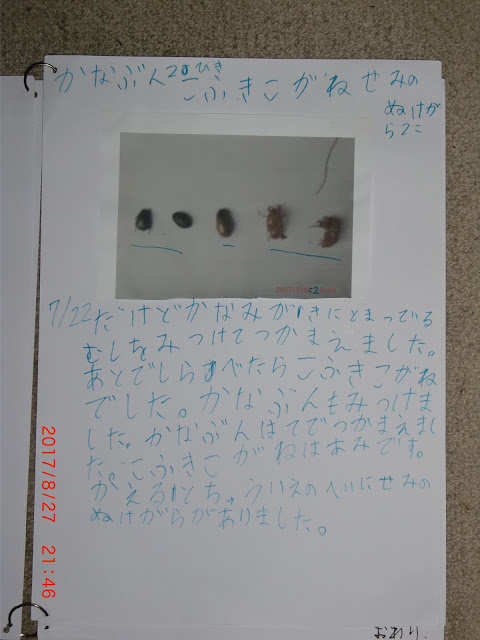 かなぶん2ひき
こふきこがね せみの
ぬけが
ら2こ
7/22だけどかなみがきにとまっている
むしをみつけてつかまえました。
あとでしらべたらこふきこがね
でした。かなぶんもみつけま
した。かなぶんはてでつかまえまし
た。こふきこがねはあみです。
かえるとちゅういえのへいにせみの
ぬけがらがありました。
2017/8/27 21:46
おわり.